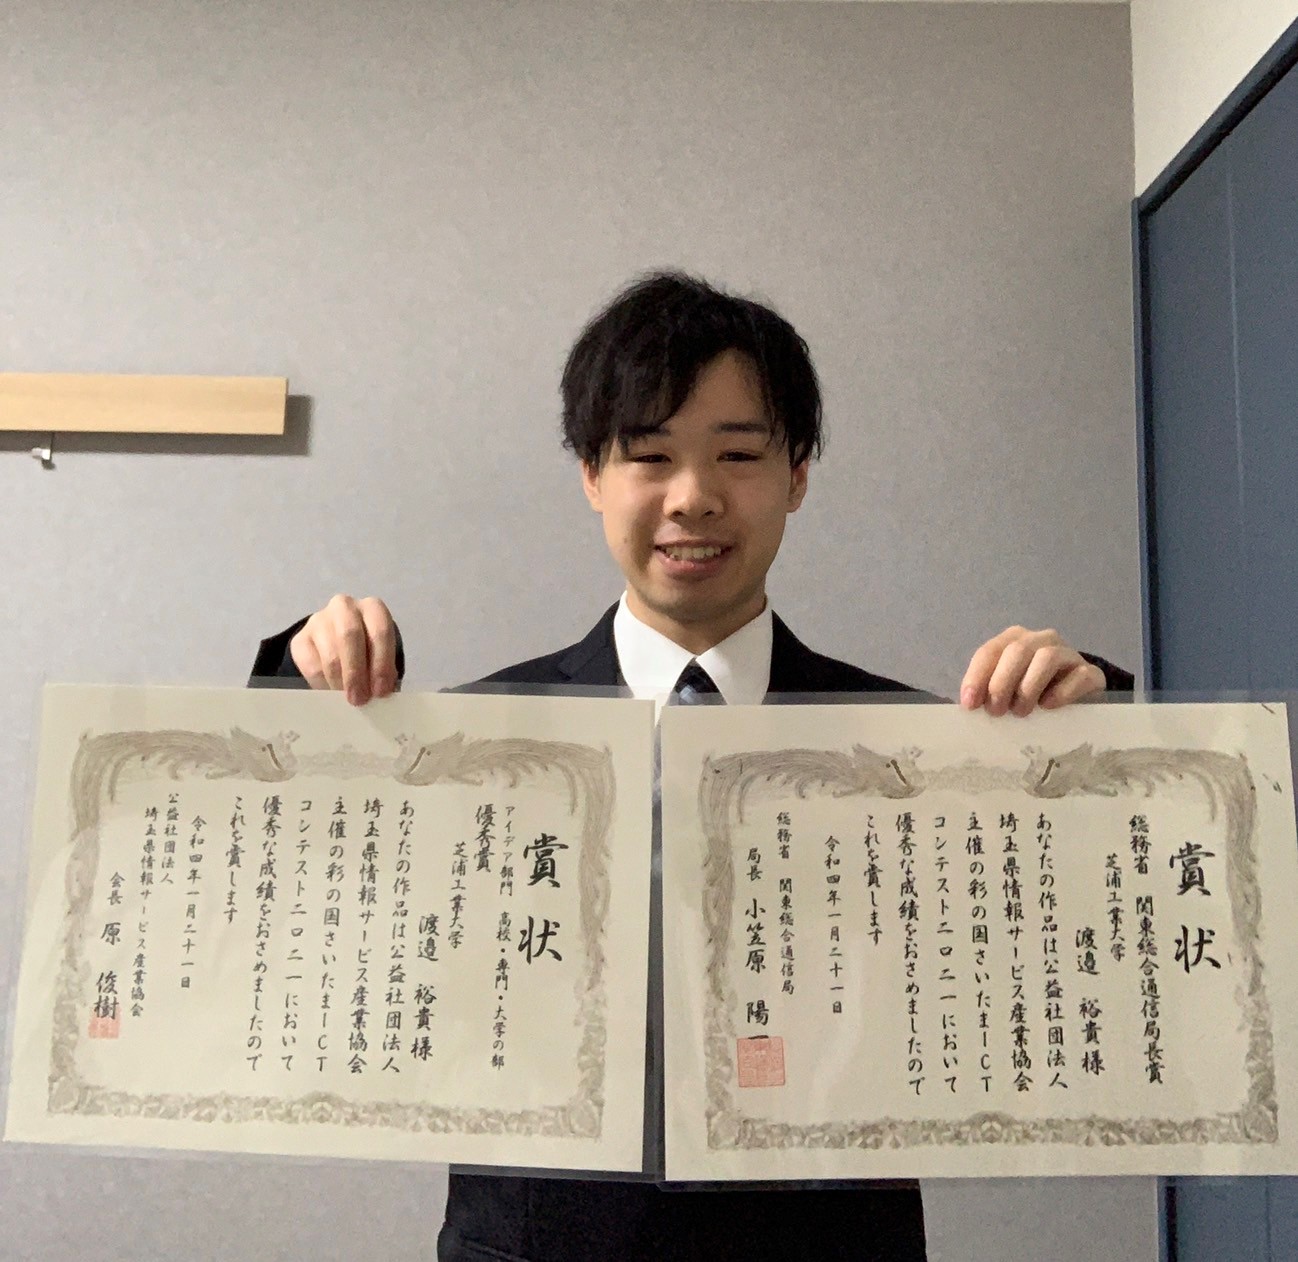 賞状
アイデア部門 高校・専門・大学の部
優秀賞
芝浦工業大学
渡邉 裕貴様
あなたの作品は公益社団法人
埼玉県情報サービス産業協会
主催の彩の国さいたまICT
コンテスト二〇二一において
優秀な成績をおさめましたので
これを賞します
令和四年一月二十一日
公益社団法人
埼玉県情報サービス産業協会
会長 原 俊樹
賞状
総務省 関東総合通信局長賞
芝浦工業大学
渡邉 裕貴様
あなたの作品は公益社団法人
埼玉県情報サービス産業協会
主催の彩の国さいたまICT
コンテスト二〇二一において
優秀な成績をおさめましたので
これを賞します
令和四年一月二十一日
総務省 関東総合通信局
局長 小笠原 陽一